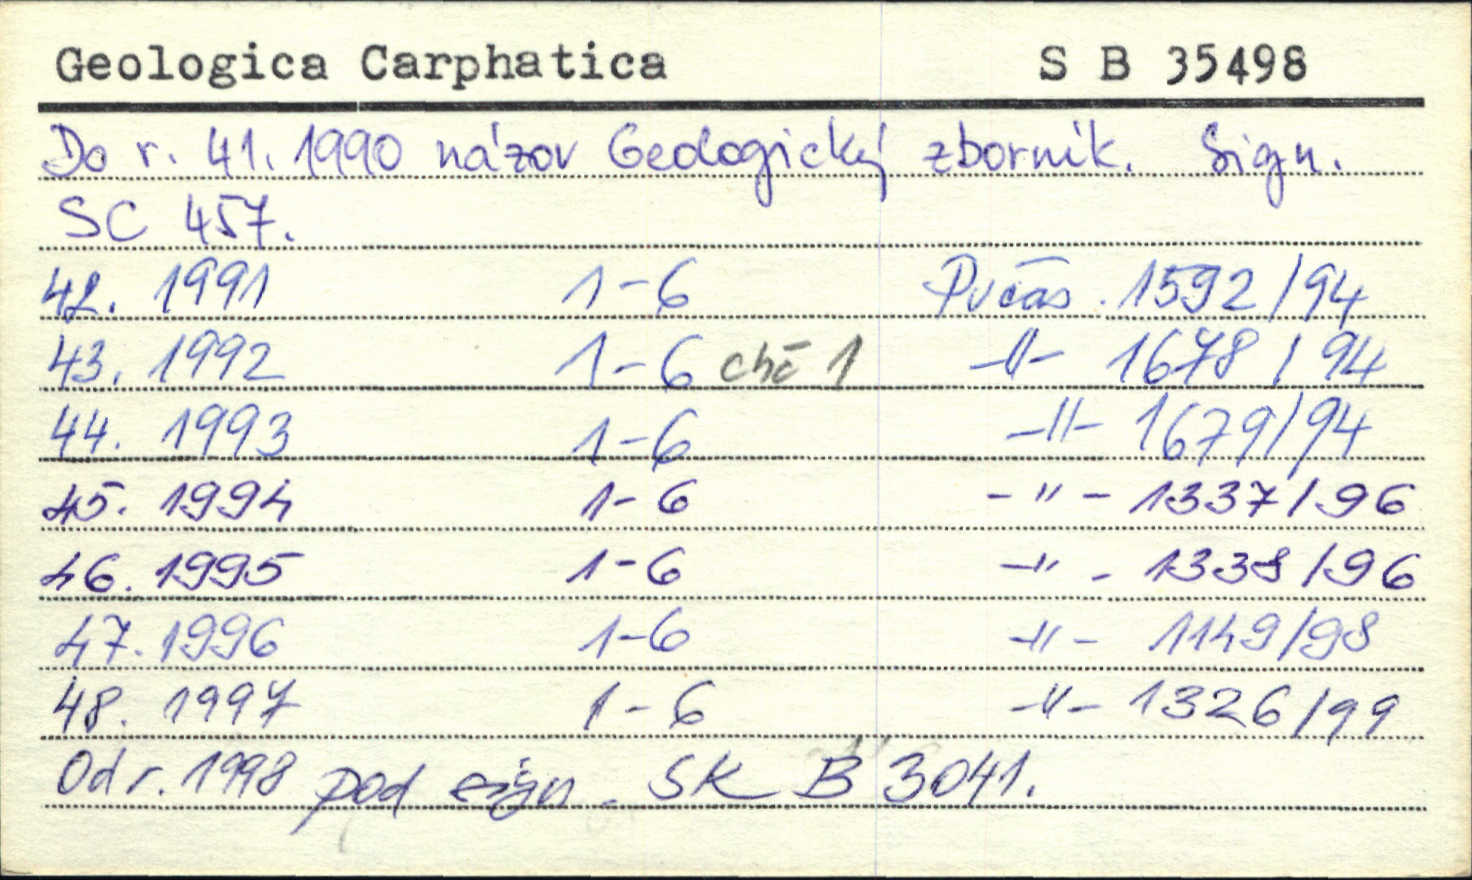 Geologica Carphatica S B 35498
Do r. 41. 1990 názov Geologický zborník. Sign.
SC 457.
42. 1991 1-6 Pvčas. 1592/94
43. 1992 1-6 chč 1 -"- 1678/94
44. 1993 1-6 -"- 1679/94
45. 1994 1-6 -"- 1337/96
46. 1995 1-6 -"- 1338/96
47. 1996 1-6 -"- 1149/98
48. 1997 1-6 -"- 1326/99
Od r. 1998 pod sign. SK B 3041.